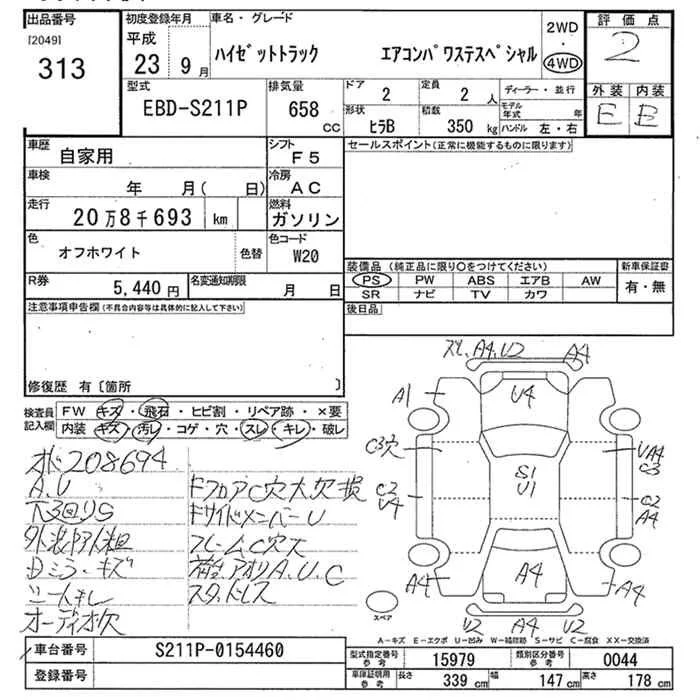 出品番号
[2049]
313
初度登録年月
平成
23 9月
車名・グレード
ハイゼットトラック エアコンパワステスペシャル
2WD
・
4WD
評価点
2
外装 内装
E E
型式
EBD-S211P
排気量
658
CC
ドア
2
定員
2 人
形状
ヒラB
積載
350 kg
ディーラー・並行
モデル年式 年
ハンドル 左・右
車歴
自家用
シフト
F5
車検
年 月( 日)
冷房
AC
走行
20万8千693 km
燃料
ガソリン
色
オフホワイト
色替
色コード
W20
R券
5,440 円
名変通知期限
月 日
セールスポイント(正常に機能するものに限ります)
装備品 (純正品に限り○をつけてください)
PS PW ABS エアB AW
SR ナビ TV カワ
新車保証書
有・無
後日品
注意事項申告欄(不具合内容等は具体的に記入して下さい)
修復歴 有〔箇所 〕
検査員記入欄
FW キズ・飛石・ヒビ割・リペア跡・×要
内装 キズ・汚レ・コゲ・穴・スレ・キレ・破レ
208694
A.U
下回りS
Dミラーキズ
シートキレ
オーディオ欠
FフロアC穴大欠損
FサイドメンバーU
フレームC穴大
荷台アオリA.U.C
スタッドレス
A4.U2
A4
A1
U4
C3穴
UA4
C3
S1
U1
C3
U4
C2
A4
A4
A4
A4
スペア
U2 A4 U2
A-キズ E-エクボ U-凹み W-補修跡 S-サビ C-腐食 XX-交換済
車台番号
S211P-0154460
登録番号
型式指定番号
参考
15979
類別区分番号
参考
0044
車庫証明用
参考
長さ 339 cm 幅 147 cm 高さ 178 cm